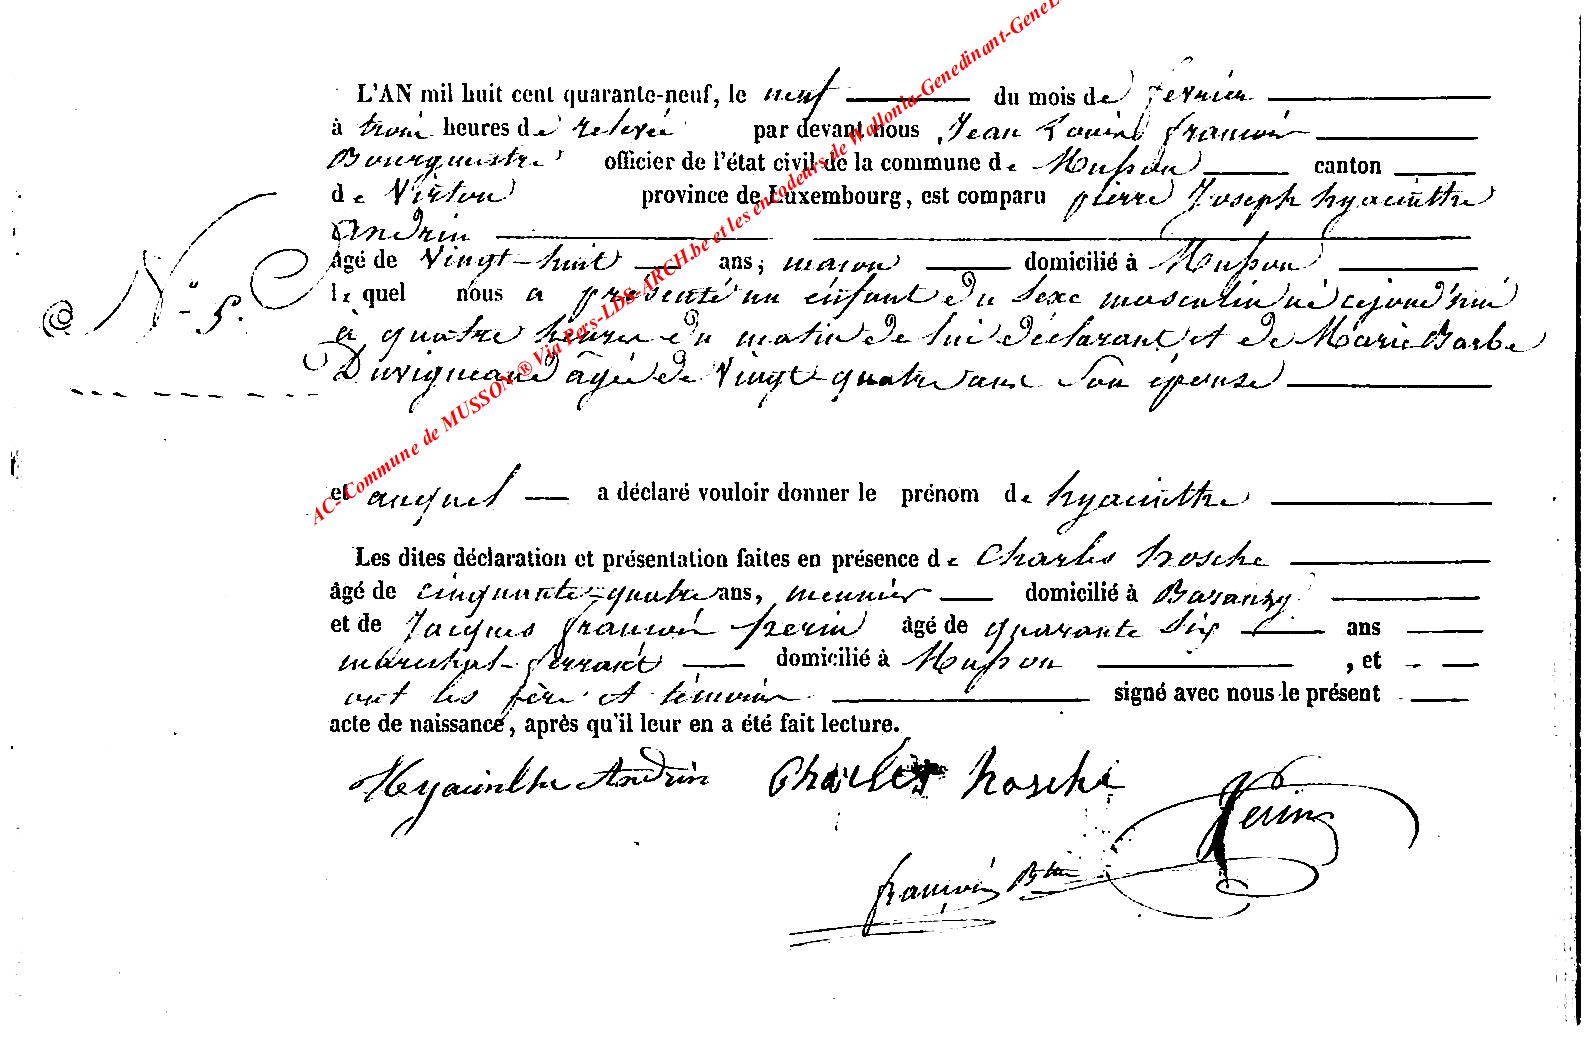 L'AN mil huit cent quarante-neuf, le neuf du mois de février
à trois heures de relevée par devant nous Jean Louis françois
Bourgmestre officier de l'état civil de la commune de Musson canton
de Virton province de Luxembourg, est comparu pierre Joseph hyacinthe
Andrin
âgé de Vingt-huit ans, maçon domicilié à Musson
le quel nous a présenté un enfant du sexe masculin né cejourd'hui
N° 5.
à quatre heures du matin de lui déclarant et de Marie Barbe
Duvigneaud âgée de Vingt quatre ans son épouse
et auquel a déclaré vouloir donner le prénom de hyacinthe
Les dites déclaration et présentation faites en présence de Charles hosche
âgé de cinquante-quatre ans, meunier domicilié à Baranzy
et de Jacques françois perin âgé de quarante six ans
maréchal-ferrant domicilié à Musson , et
ont les père et témoins signé avec nous le présent
acte de naissance, après qu'il leur en a été fait lecture.
Hyacinthe Andrin Charles hosche
Perin
françois Btre
AC-Commune de MUSSON ® Via Pers-LDS-ARCH.be et les encodeurs de Wallonia-Genedinant-GeneL